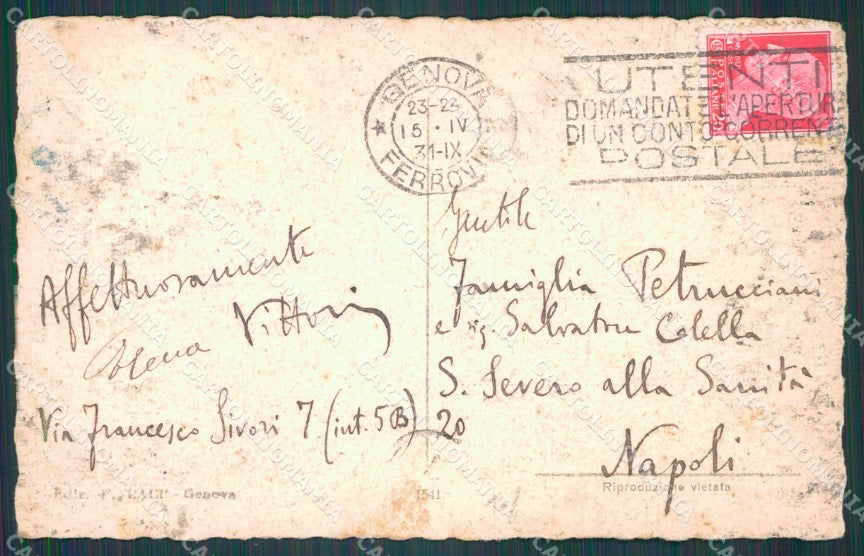 GENOVA
23-24
15 · IV
31-IX
FERROVIA
UTENTI
DOMANDATE L'APERTUR
DI UN CONTO CORREN
POSTALE
Gentile
Famiglia Petrucciani
e sig. Salvatore Colella
S. Severo alla Sanità
20
Napoli
Affettuosamente
Vittorio
Via Francesco Sivori 7 (int. 5B)
Ediz. - Genova
1541
Riproduzione vietata
CARTOLINOMANIA